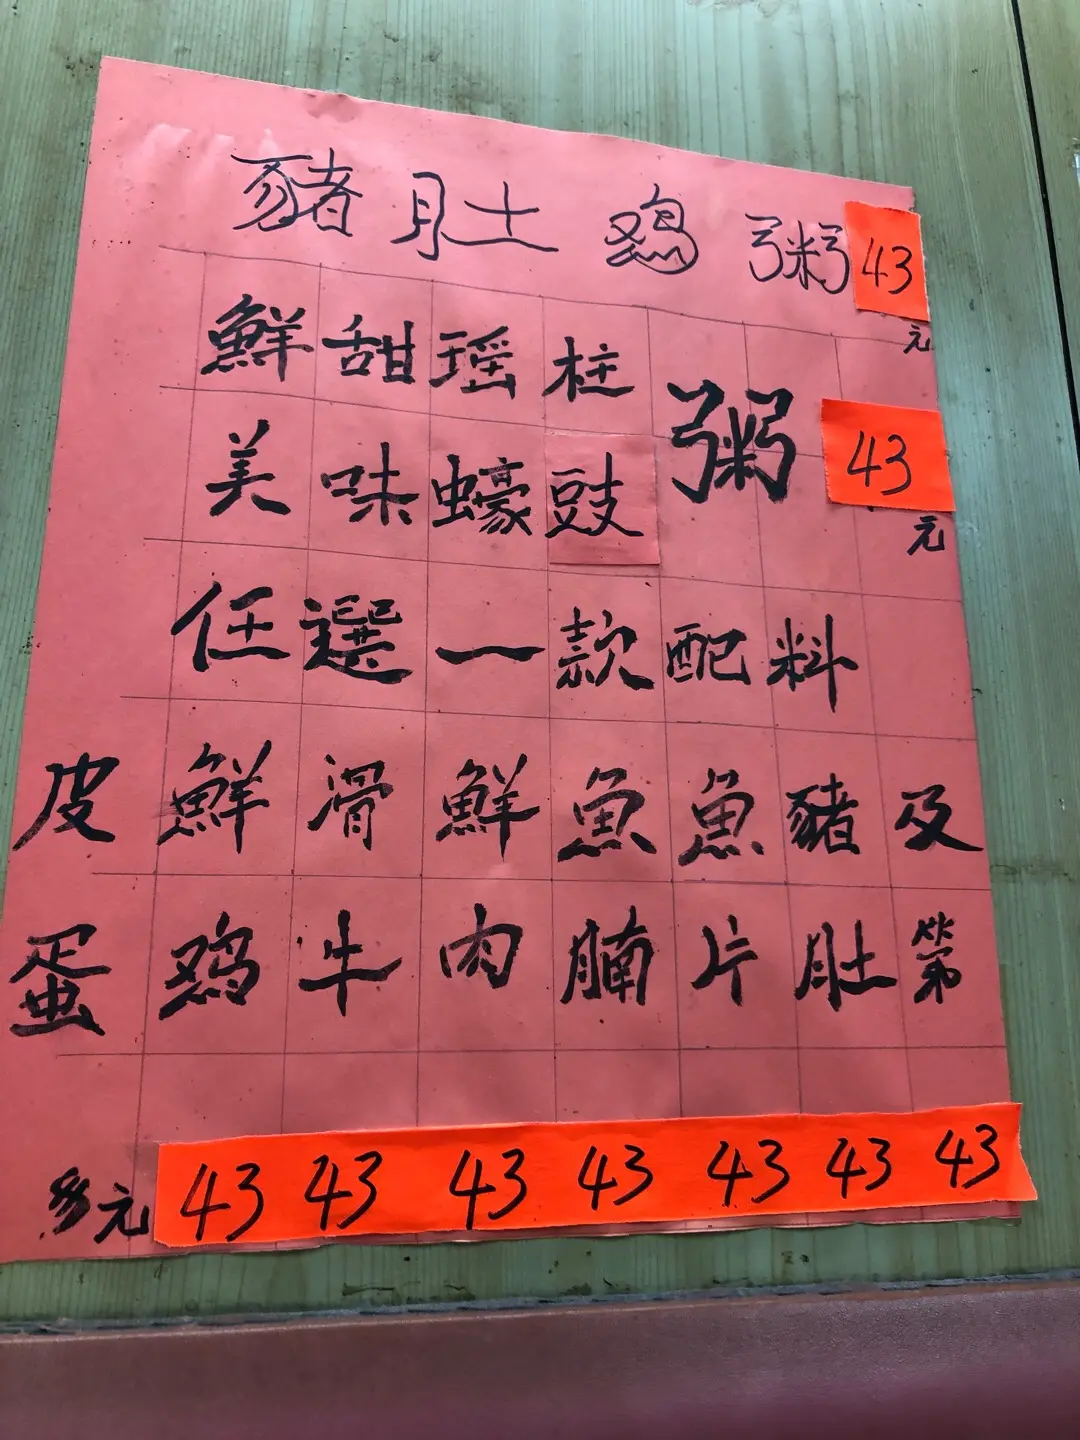 豬肚鸡粥 43
元
鮮甜瑶柱
粥 43
美味蠔豉
元
任選一款配料
皮 鮮 滑 鮮 魚 魚 豬 及
蛋 鸡 牛 肉 腩 片 肚 第
元 43 43 43 43 43 43 43